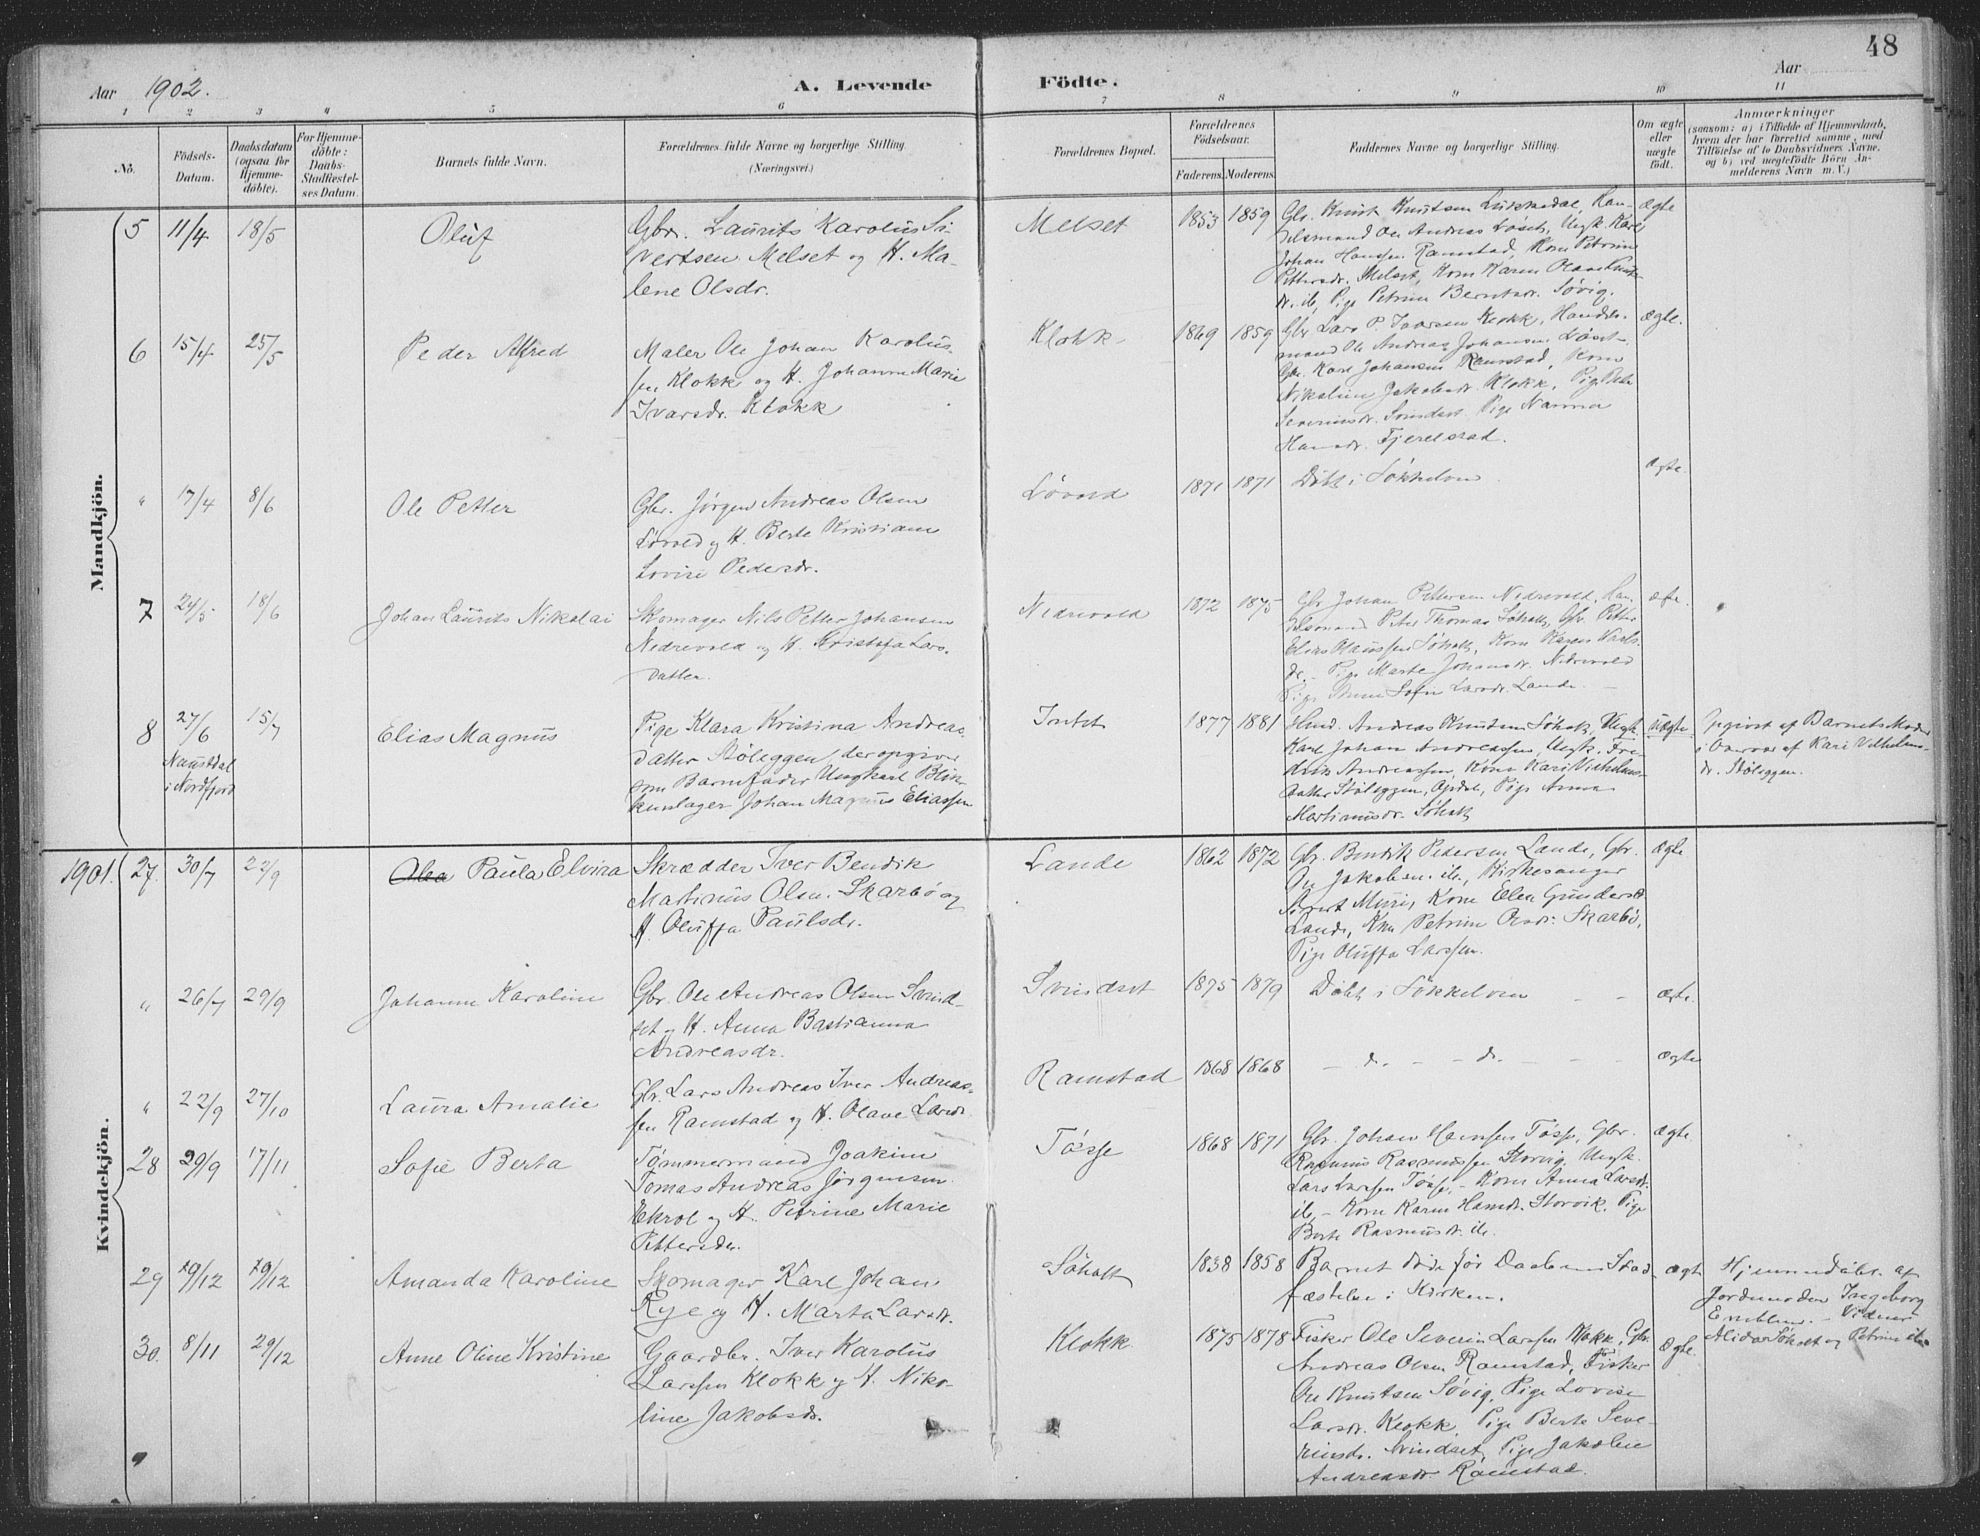 48
Aar 1902.
A. Levende Födte.
Aar
1 2 3 4 5 6 7 8 9 10 11
No.
Födsels-
Datum.
Daabsdatum
(ogsaa for
Hjemme-
døbte).
For Hjemme-
døbte:
Daabs-
Stadfæstel-
ses Datum.
Barnets fulde Navn.
Forældrenes fulde Navne og borgerlige Stilling
(Næringsvei.)
Forældrenes Bopæl.
Forældrenes
Födselsaar.
Faderens.
Moderens.
Faddernes Navne og borgerlige Stilling.
Om ægte
eller
uægte
født.
Anmærkninger
(saasom: a) i Tilfælde af Hjemmedaab,
hvem der har forrettet samme, med
Tilföielse af to Daabsvidners Navne.
og b) ved uægtefødte Börn An-
melderens Navn m. V.)
Mandkjön.
5 11/4 18/5
Oluf
Gbr. Laurits Karolus Si-
vertsen Melset og H. Ma-
lene Olsdr.
Melset
1853 1859
Gbr. Knut Knutsen Lukkedal, Han-
delsmand Ole Andreas Løset, Ungk. Karl
Johan Hansen Ramstad, Kone Petrine
Pettersdr. Melset, Kone Karen Olave Knuts-
dr. ib, Pige Petrine Berntsdr. Søvig.
ægte
6 15/4 25/5
Peder Alfred
Maler Ole Johan Karolus-
sen Klokk og H. Johanne Marie
Ivarsdr. Klokk
Klokk
1869 1859
Gbr. Lars P. Ivarsen Klokk, Handels-
mand Ole Andreas Johansen Løset
Gbr. Karl Johansen Ramstad, Kone
Nikoline Jakobsdr. Klokk, Pige Berte
Severinsdr. Svindset Pige Nanna
Hansdr. Fjerelstad.
ægte.
" 17/4 8/6
Ole Petter
Gbr. Jørgen Andreas Olsen
Løvold og H. Berte Kristiane
Lovise Pedersdr.
Løvold
1871 1871
Døbt i Søkkelven
ægte
7 24/5 18/6
Johan Laurits Nikolai
Skomager Nils Petter Johansen
Nedrevold og H. Kristofa Lars-
datter.
Nedrevold
1872 1875
Gbr Johan Pettersen Nedrevold, Han-
delsmand Peter Thomas Søholt, Gbr. Petter
Elias Olaussen Søholt, Kone Karen Karls-
dr. - Pige Marte Johansdr. Nedrevold
Pige Anne Sofie Larsdr. Lande. -
ægte.
8 27/6 15/7
Naustdal
i Nordfjord
Elias Magnus
Pige Klara Kristina Andreas-
datter Støleggen, der opgiver
som Barnefader Ungkarl Blik-
kenslager Johan Magnus Eliassen
1877 1881
Hmd. Andreas Knutsen Søholt, Ungk.
Karl Johan Andreassen, Ungk. Fre-
drik Andreassen, Kone Kari Vilhelms-
datter Støleggen, Opdal, Pige Anna
Martiniusdr. Søholt
uægte
Opgivet af Barnets Moder
i Overvær af Kari Vilhelms-
dr. Støleggen.
Kvindekjön.
1901. 27. 30/7 22/9
Paula Elvira
Skrædder Iver Bendik
Martinus Olsen Skarbø og
H. Oluffa Paulsdr.
Lande
1862 1872
Gbr. Bendik Pedersen Lande, Gbr.
Ole Jakobsen ib., Kirkesanger
Sivert Muri, Kone Elen Gundersdr
Lande, Kone Petrine Olsdr. Skarbø,
Pige Oluffa Larssen.
ægte
" 26/7 29/9
Johanne Karoline
Gbr. Ole Andreas Olsen Svind-
set og H. Anna Bastianna
Andreasdr.
Svindset
1875 1879
Døbt i Søkkelven - -
ægte.
" 22/9 27/10
Laura Amalie
Gbr. Lars Andreas Iver Andreas-
sen Ramstad og H. Olave Larsdr.
Ramstad
1868 1868
- d. - - d. - - -
ægte
28 29/9 17/11
Sofie Berta
Tømmermand Joakim
Tomas Andreas Jørgensen
Ekrol og H. Petrine Marie
Pettersdr.
Tøsse
1868 1871
Gbr. Johan Hansen Tøsse, Gbr.
Rasmus Rasmussen Storvig, Ungk.
Lars Larsen Tøsse, - Kone Anna Larsdr.
ib, - Kone Karen Hansdr. Storvik, Pige
Berte Rasmusdr. ib.
ægte.
29 19/12 19/12
Amanda Karoline
Skomager Karl Johan
Rye og H. Marta Larsdr.
Søholt
1838 1858
Barnet døde før Daabens Stad-
fæstelse i Kirken.
ægte
Hjemmedøbt af
Jordmoder Ingeborg
Emblem. - Vidner
Alida Søholt og Petrine ib.
30. 8/11 29/12
Anne Oline Kristine
Gaardbr. Iver Karolus
Larssen Klokk og H. Niko-
line Jakobsdr.
Klokk
1875 1878
Fisker Ole Severin Larssen Klokk, Gbr.
Andreas Olsen Ramstad, Fisker
Ole Knutsen Søvig, Pige Lovise
Larsdr. Klokk, Pige Berte Seve-
rinsdr. Svindset, Pige Jakobine
Andreasdr. Ramstad.
Ægte